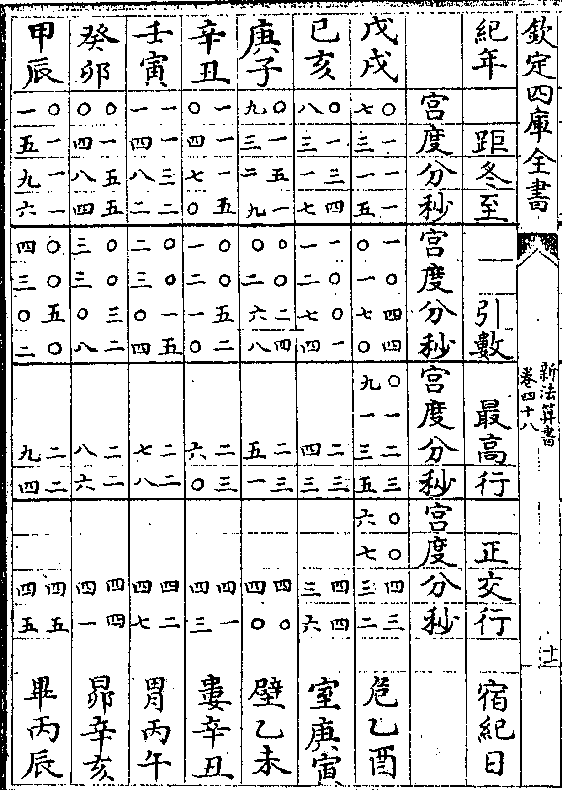 欽定四庫全書
新法算書
卷四十八
紀年 距冬至 一引數 最高行 正交行 宿紀日
宮度分秒 宮度分秒 宮度分秒 宮度分秒
戊戌 〇七 一三 一一 一五 一〇 〇一 四七 四〇 〇九 一一 二三 三五 〇六 〇七 四三 三二 危乙酉
己亥 〇八 一三 三一 四七 一一 〇二 〇七 一四 二四 三三 四三 四六 室庚寅
庚子 〇九 一三 五二 一九 〇〇 〇二 二六 四八 二五 三一 四四 〇〇 壁乙未
辛丑 一〇 一四 一七 五〇 〇一 〇二 五一 二〇 二六 三〇 四四 一三 婁辛丑
壬寅 一一 一四 三八 二二 〇二 〇三 一〇 五四 二七 二八 四四 二七 胃丙午
癸卯 〇〇 一四 五八 五四 〇三 〇三 三〇 二八 二八 二六 四四 四一 昴辛亥
甲辰 〇一 一五 一九 一六 〇四 〇三 五〇 〇二 二九 二四 四四 五五 畢丙辰